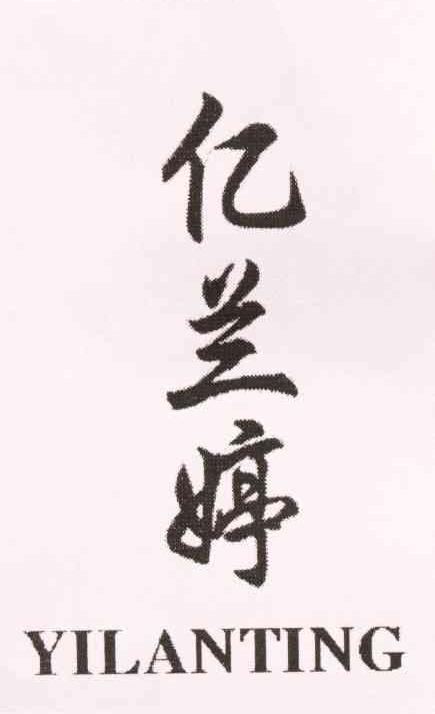 亿兰婷
YILANTING